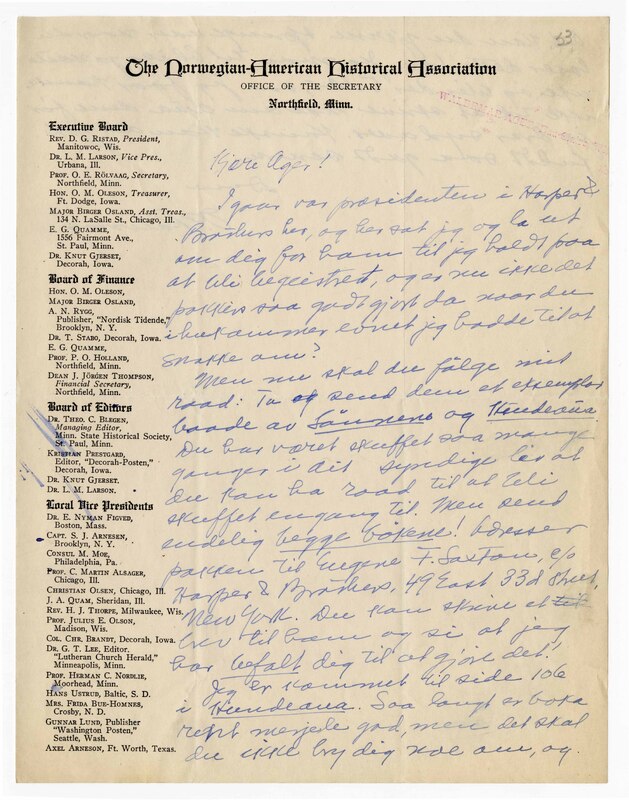 53
The Norwegian-American Historical Association
OFFICE OF THE SECRETARY
Northfield, Minn.
Executive Board
REV. D. G. RISTAD, President,
Manitowoc, Wis.
DR. L. M. LARSON, Vice Pres.,
Urbana, Ill.
PROF. O. E. RÖLVAAG, Secretary,
Northfield, Minn.
HON. O. M. OLESON, Treasurer,
Ft. Dodge, Iowa.
MAJOR BIRGER OSLAND, Asst. Treas.,
134 N. LaSalle St., Chicago, Ill.
E. G. QUAMME,
1556 Fairmont Ave.,
St. Paul, Minn.
DR. KNUT GJERSET,
Decorah, Iowa.
Board of Finance
HON. O. M. OLESON,
MAJOR BIRGER OSLAND,
A. N. RYGG,
Publisher, "Nordisk Tidende,"
Brooklyn, N. Y.
DR. T. STABO, Decorah, Iowa.
E. G. QUAMME,
PROF. P. O. HOLLAND,
Northfield, Minn.
DEAN J. JÖRGEN THOMPSON,
Financial Secretary,
Northfield, Minn.
Board of Editors
DR. THEO. C. BLEGEN,
Managing Editor,
Minn. State Historical Society,
St. Paul, Minn.
KRISTIAN PRESTGARD,
Editor, "Decorah-Posten,"
Decorah, Iowa.
DR. KNUT GJERSET.
DR. L. M. LARSON.
Local Vice Presidents
DR. E. NYMAN FIGVED,
Boston, Mass.
CAPT. S. J. ARNESEN,
Brooklyn, N. Y.
CONSUL M. MOE,
Philadelphia, Pa.
PROF. C. MARTIN ALSAGER,
Chicago, Ill.
CHRISTIAN OLSEN, Chicago, Ill.
J. A. QUAM, Sheridan, Ill.
REV. H. J. THORPE, Milwaukee, Wis.
PROF. JULIUS E. OLSON,
Madison, Wis.
COL. CHR. BRANDT, Decorah, Iowa.
DR. G. T. LEE, Editor.
"Lutheran Church Herald,"
Minneapolis, Minn.
PROF. HERMAN C. NORDLIE,
Moorhead, Minn.
HANS USTRUD, Baltic, S. D.
MRS. FRIDA BUE-HOMNES,
Crosby, N. D.
GUNNAR LUND, Publisher
"Washington Posten,"
Seattle, Wash.
AXEL ARNESON, Ft. Worth, Texas.
Kjære Ager!
I gaar var præsidenten i Harper &
Brothers her, og her sat jeg og la ut
om dig for ham til jeg holdt paa
at bli begeistret, og er nu ikke det
pokkers saa godt gjort da naar du
ihukommer evnet jeg hadde til at
snakke om?
Men nu skal du følge mit
raad: Ta og send dem et exemplar
baade av Sønnene og Hundeøine
Du har været skuffet saa mange
ganger i dit syndige liv at
du kan ha raad til at bli
skuffet engang til. Men send
endelig begge bøkene! Adresser
pakken til Eugene F. Saxton, c/o
Harper & Brothers, 49 East 33d Street,
New York. Du kan skrive et
brev til ham og si at jeg
har befalt dig til at gjøre det!
Jeg er kommet til side 106
i Hundeøine. Saa langt er boka
god, men det skal
du ikke bry dig noe om, og